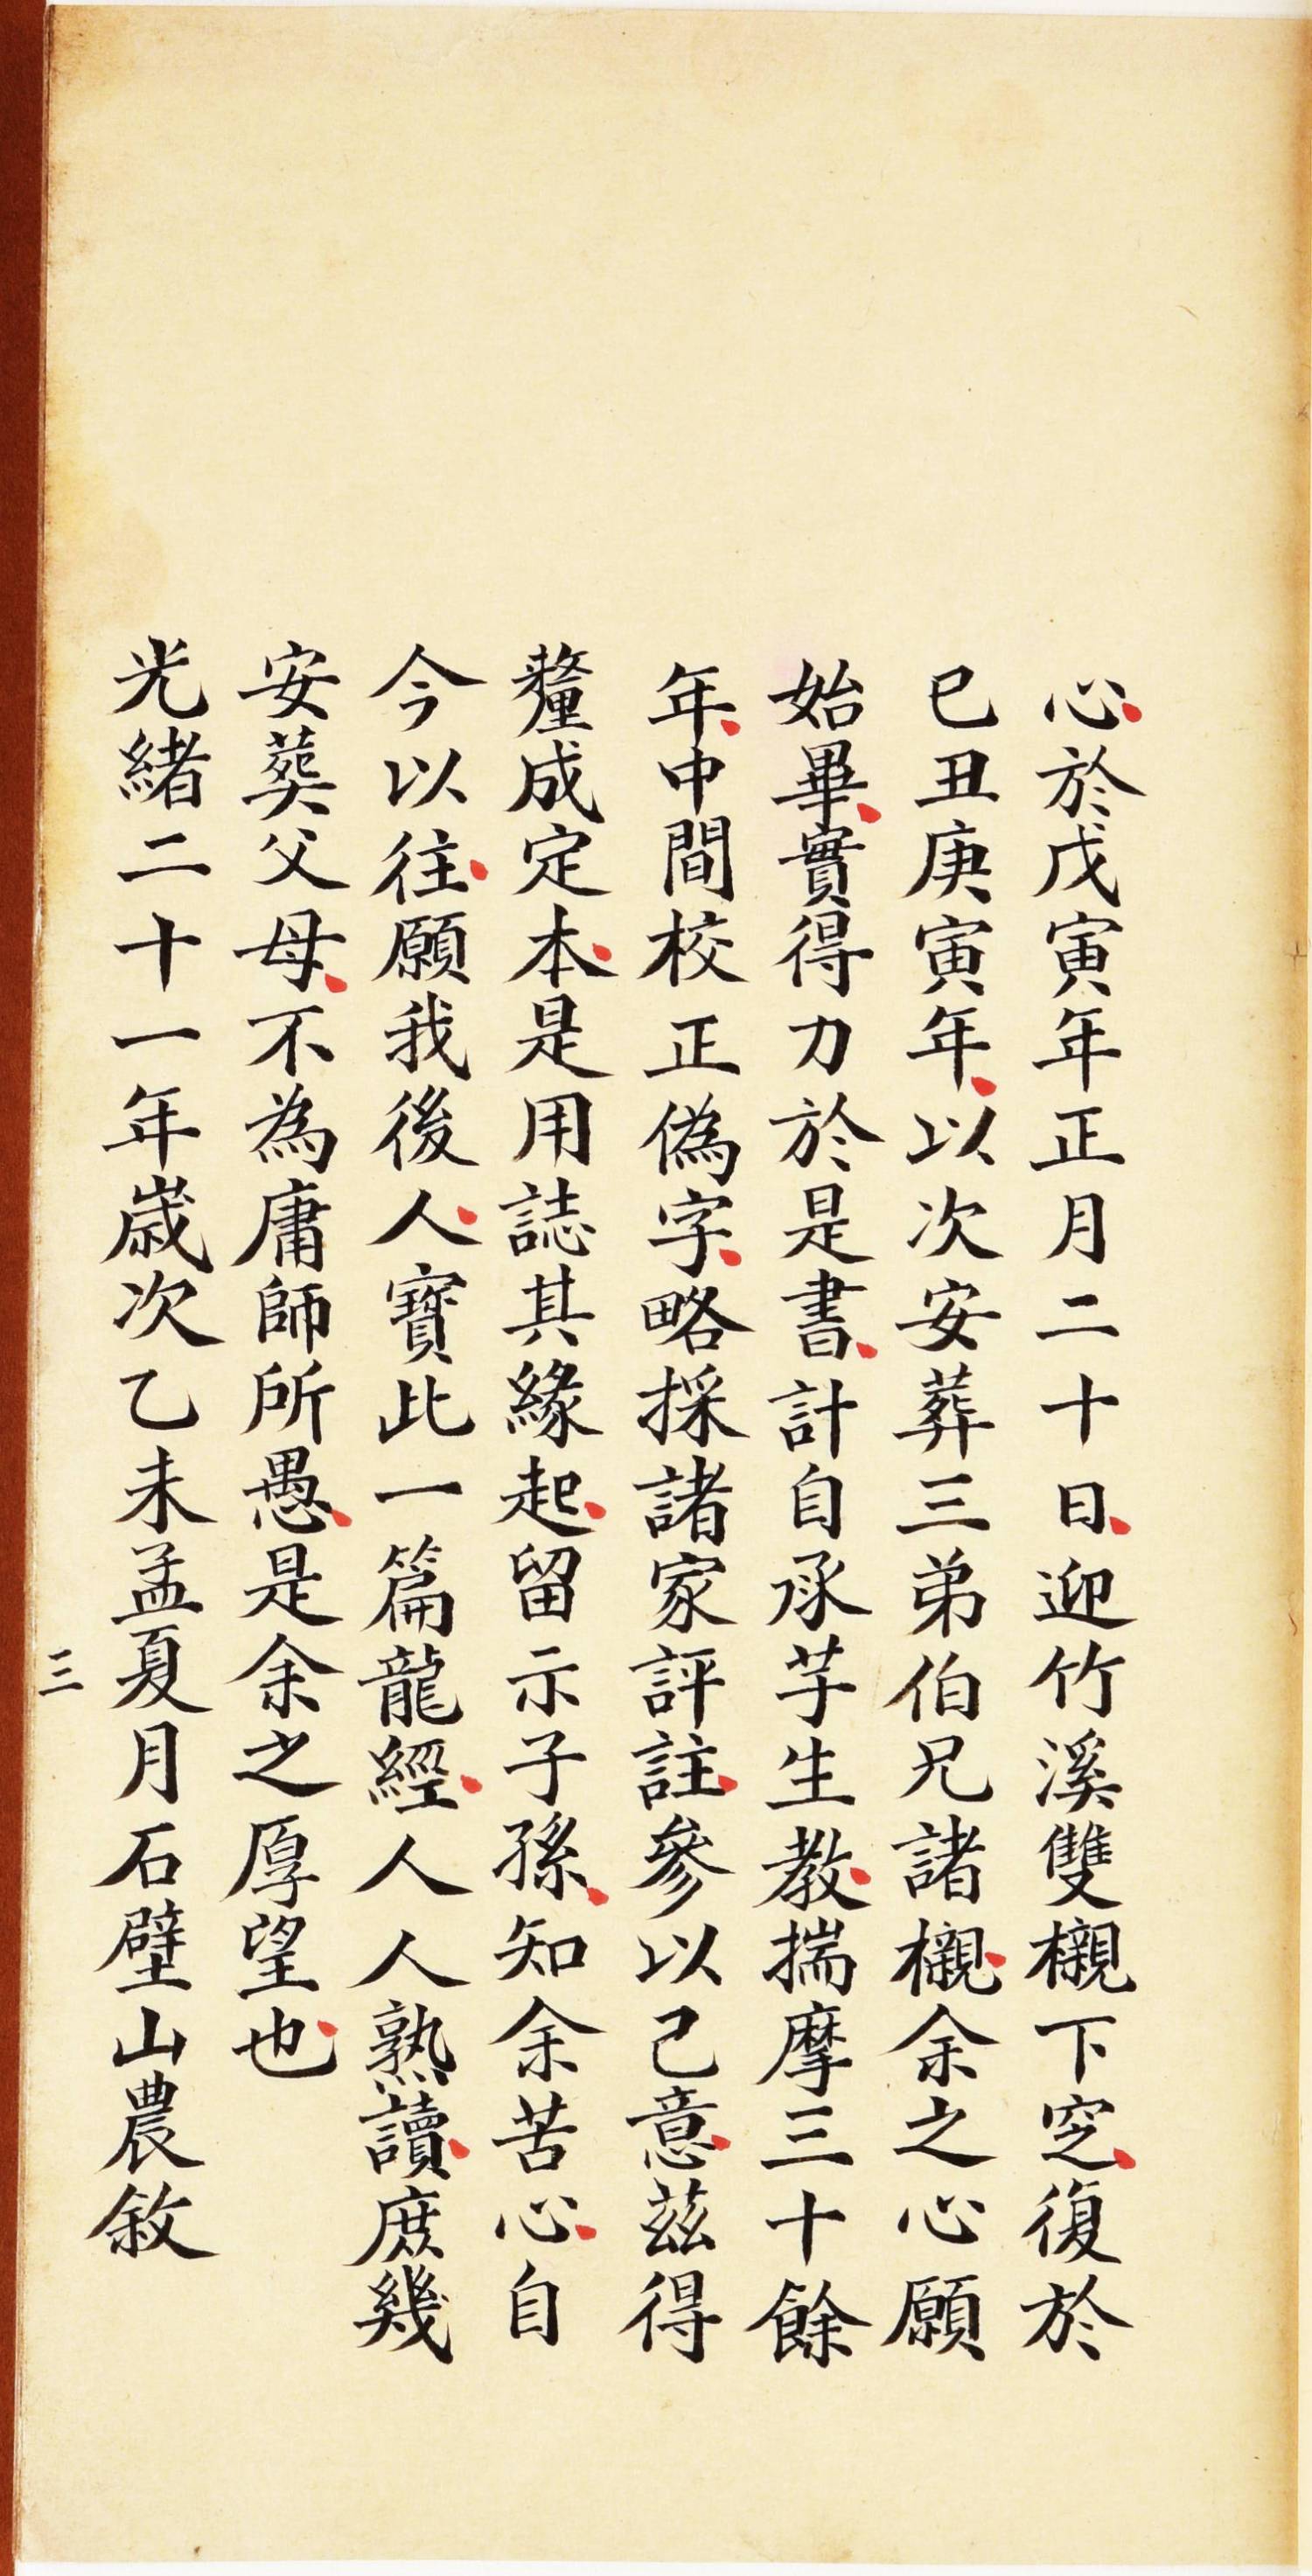 心於戊寅年正月二十日迎竹溪雙櫬下窆復於
已丑庚寅年以次安葬三弟伯兄諸櫬余之心願
始畢實得力於是書計自承芋生教揣摩三十餘
年中間校正偽字略採諸家評註參以己意茲得
釐成定本是用誌其緣起留示子孫知余苦心自
今以往願我後人寶此一篇龍經人人熟讀庶幾
安葬父母不為庸師所愚是余之厚望也
光緒二十一年歲次乙未孟夏月石壁山農敘
三